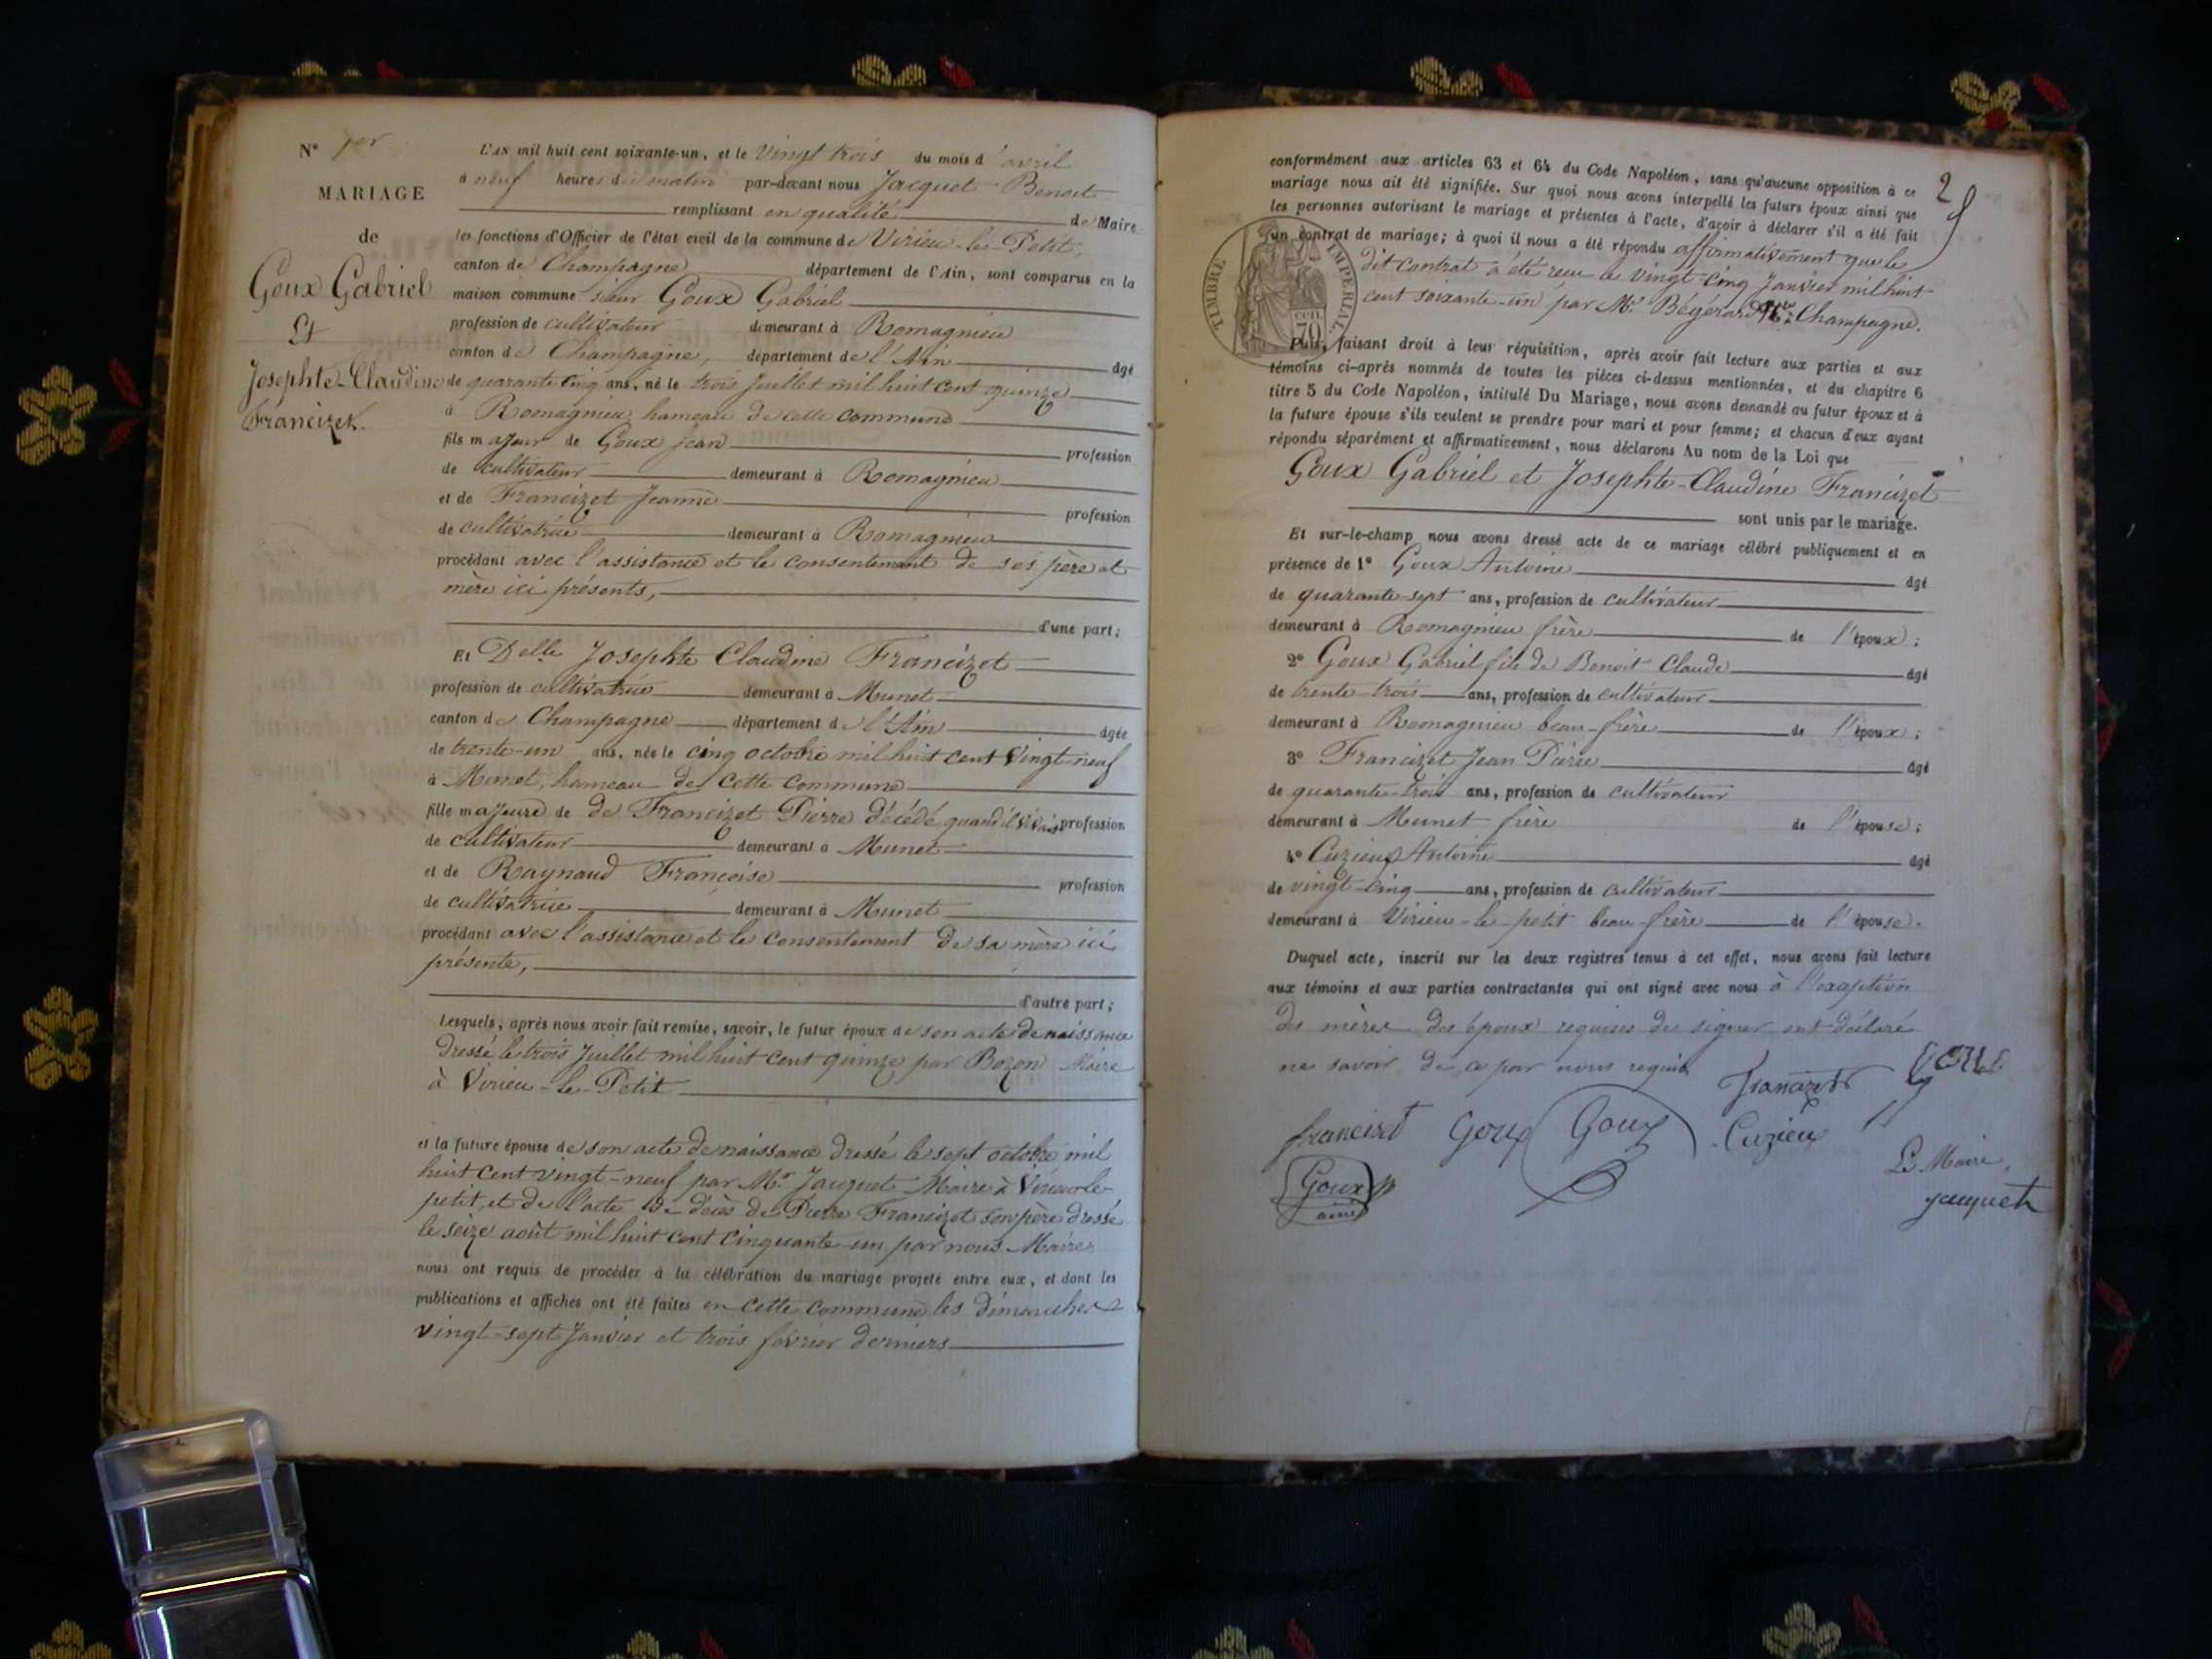 N° 1er
MARIAGE
de
Goux Gabriel
Et
Josephte-Claudine
Francizet.
L'AN mil huit cent soixante-un, et le vingt trois du mois d'avril
à neuf heures du matin par-devant nous Jacquet Benoit
remplissant en qualité de Maire
les fonctions d'Officier de l'état civil de la commune de Virieu-le-Petit,
canton de Champagne département de l'Ain, sont comparus en la
maison commune sieur Goux Gabriel
profession de cultivateur demeurant à Romagnieu
canton de Champagne, département de l'Ain âgé
de quarante cinq ans, né le trois Juillet mil huit cent quinze
à Romagnieu hameau de cette commune
fils majeur de Goux jean profession
de cultivateur demeurant à Romagnieu
et de Francizet Jeanne profession
de cultivatrice demeurant à Romagnieu
procédant avec l'assistance et le consentement de ses père et
mère ici présents,
d'une part;
Et Delle Josephte Claudine Francizet
profession de cultivatrice demeurant à Munet
canton de Champagne département de l'Ain âgée
de trente-un ans, née le cinq octobre mil huit cent vingt-neuf
à Munet, hameau de cette commune
fille majeure de de Francizet Pierre décédé quand il vivait profession
de cultivateur demeurant à Munet
et de Raynaud Françoise profession
de cultivatrice demeurant à Munet
procédant avec l'assistance et le consentement de sa mère ici
présente,
d'autre part;
Lesquels, après nous avoir fait remise, savoir, le futur époux de son acte de naissance
dressé le trois Juillet mil huit cent quinze par Bozon Maire
à Virieu-le-Petit
et la future épouse de son acte de naissance dressé le sept octobre mil
huit cent vingt-neuf par Mr Jacquet Maire à Virieu-le-
petit, et de l'acte de décès de Pierre Francizet son père dressé
le seize août mil huit cent cinquante-un par nous Maire
nous ont requis de procéder à la célébration du mariage projeté entre eux, et dont les
publications et affiches ont été faites en cette commune les dimanches
vingt-sept Janvier et trois février derniers
2
conformément aux articles 63 et 64 du Code Napoléon, sans qu'aucune opposition à ce
mariage nous ait été signifiée. Sur quoi nous avons interpellé les futurs époux ainsi que
les personnes autorisant le mariage et présentes à l'acte, d'avoir à déclarer s'il a été fait
un contrat de mariage; à quoi il nous a été répondu affirmativement que le
dit contrat a été reçu le vingt-cinq Janvier mil huit
cent soixante-un par Me Bégérard Champagne.
TIMBRE IMPERIAL.
cen.
70
Puis, faisant droit à leur réquisition, après avoir fait lecture aux parties et aux
témoins ci-après nommés de toutes les pièces ci-dessus mentionnées, et du chapitre 6
titre 5 du Code Napoléon, intitulé Du Mariage, nous avons demandé au futur époux et à
la future épouse s'ils veulent se prendre pour mari et pour femme; et chacun d'eux ayant
répondu séparément et affirmativement, nous déclarons Au nom de la Loi que
Goux Gabriel et Josephte-Claudine Francizet
sont unis par le mariage.
Et sur-le-champ nous avons dressé acte de ce mariage célébré publiquement et en
présence de 1° Goux Antoine âgé
de quarante-sept ans, profession de cultivateur
demeurant à Romagnieu frère de l'époux;
2° Goux Gabriel fils de Benoit Claude âgé
de trente-trois ans, profession de cultivateur
demeurant à Romagnieu beau-frère de l'époux;
3° Francizet Jean Pierre âgé
de quarante-trois ans, profession de cultivateur
demeurant à Munet frère de l'épouse;
4° Cuzieu Antoine âgé
de vingt-cinq ans, profession de cultivateur
demeurant à Virieu-le-petit beau-frère de l'épouse.
Duquel acte, inscrit sur les deux registres tenus à cet effet, nous avons fait lecture
aux témoins et aux parties contractantes qui ont signé avec nous à l'exaption
des mères des époux requises de signer ont déclaré
ne savoir de ce par nous requis
Goux
francizet Goux Goux Cuzieu
Goux
ainé
Le Maire,
Jacquet